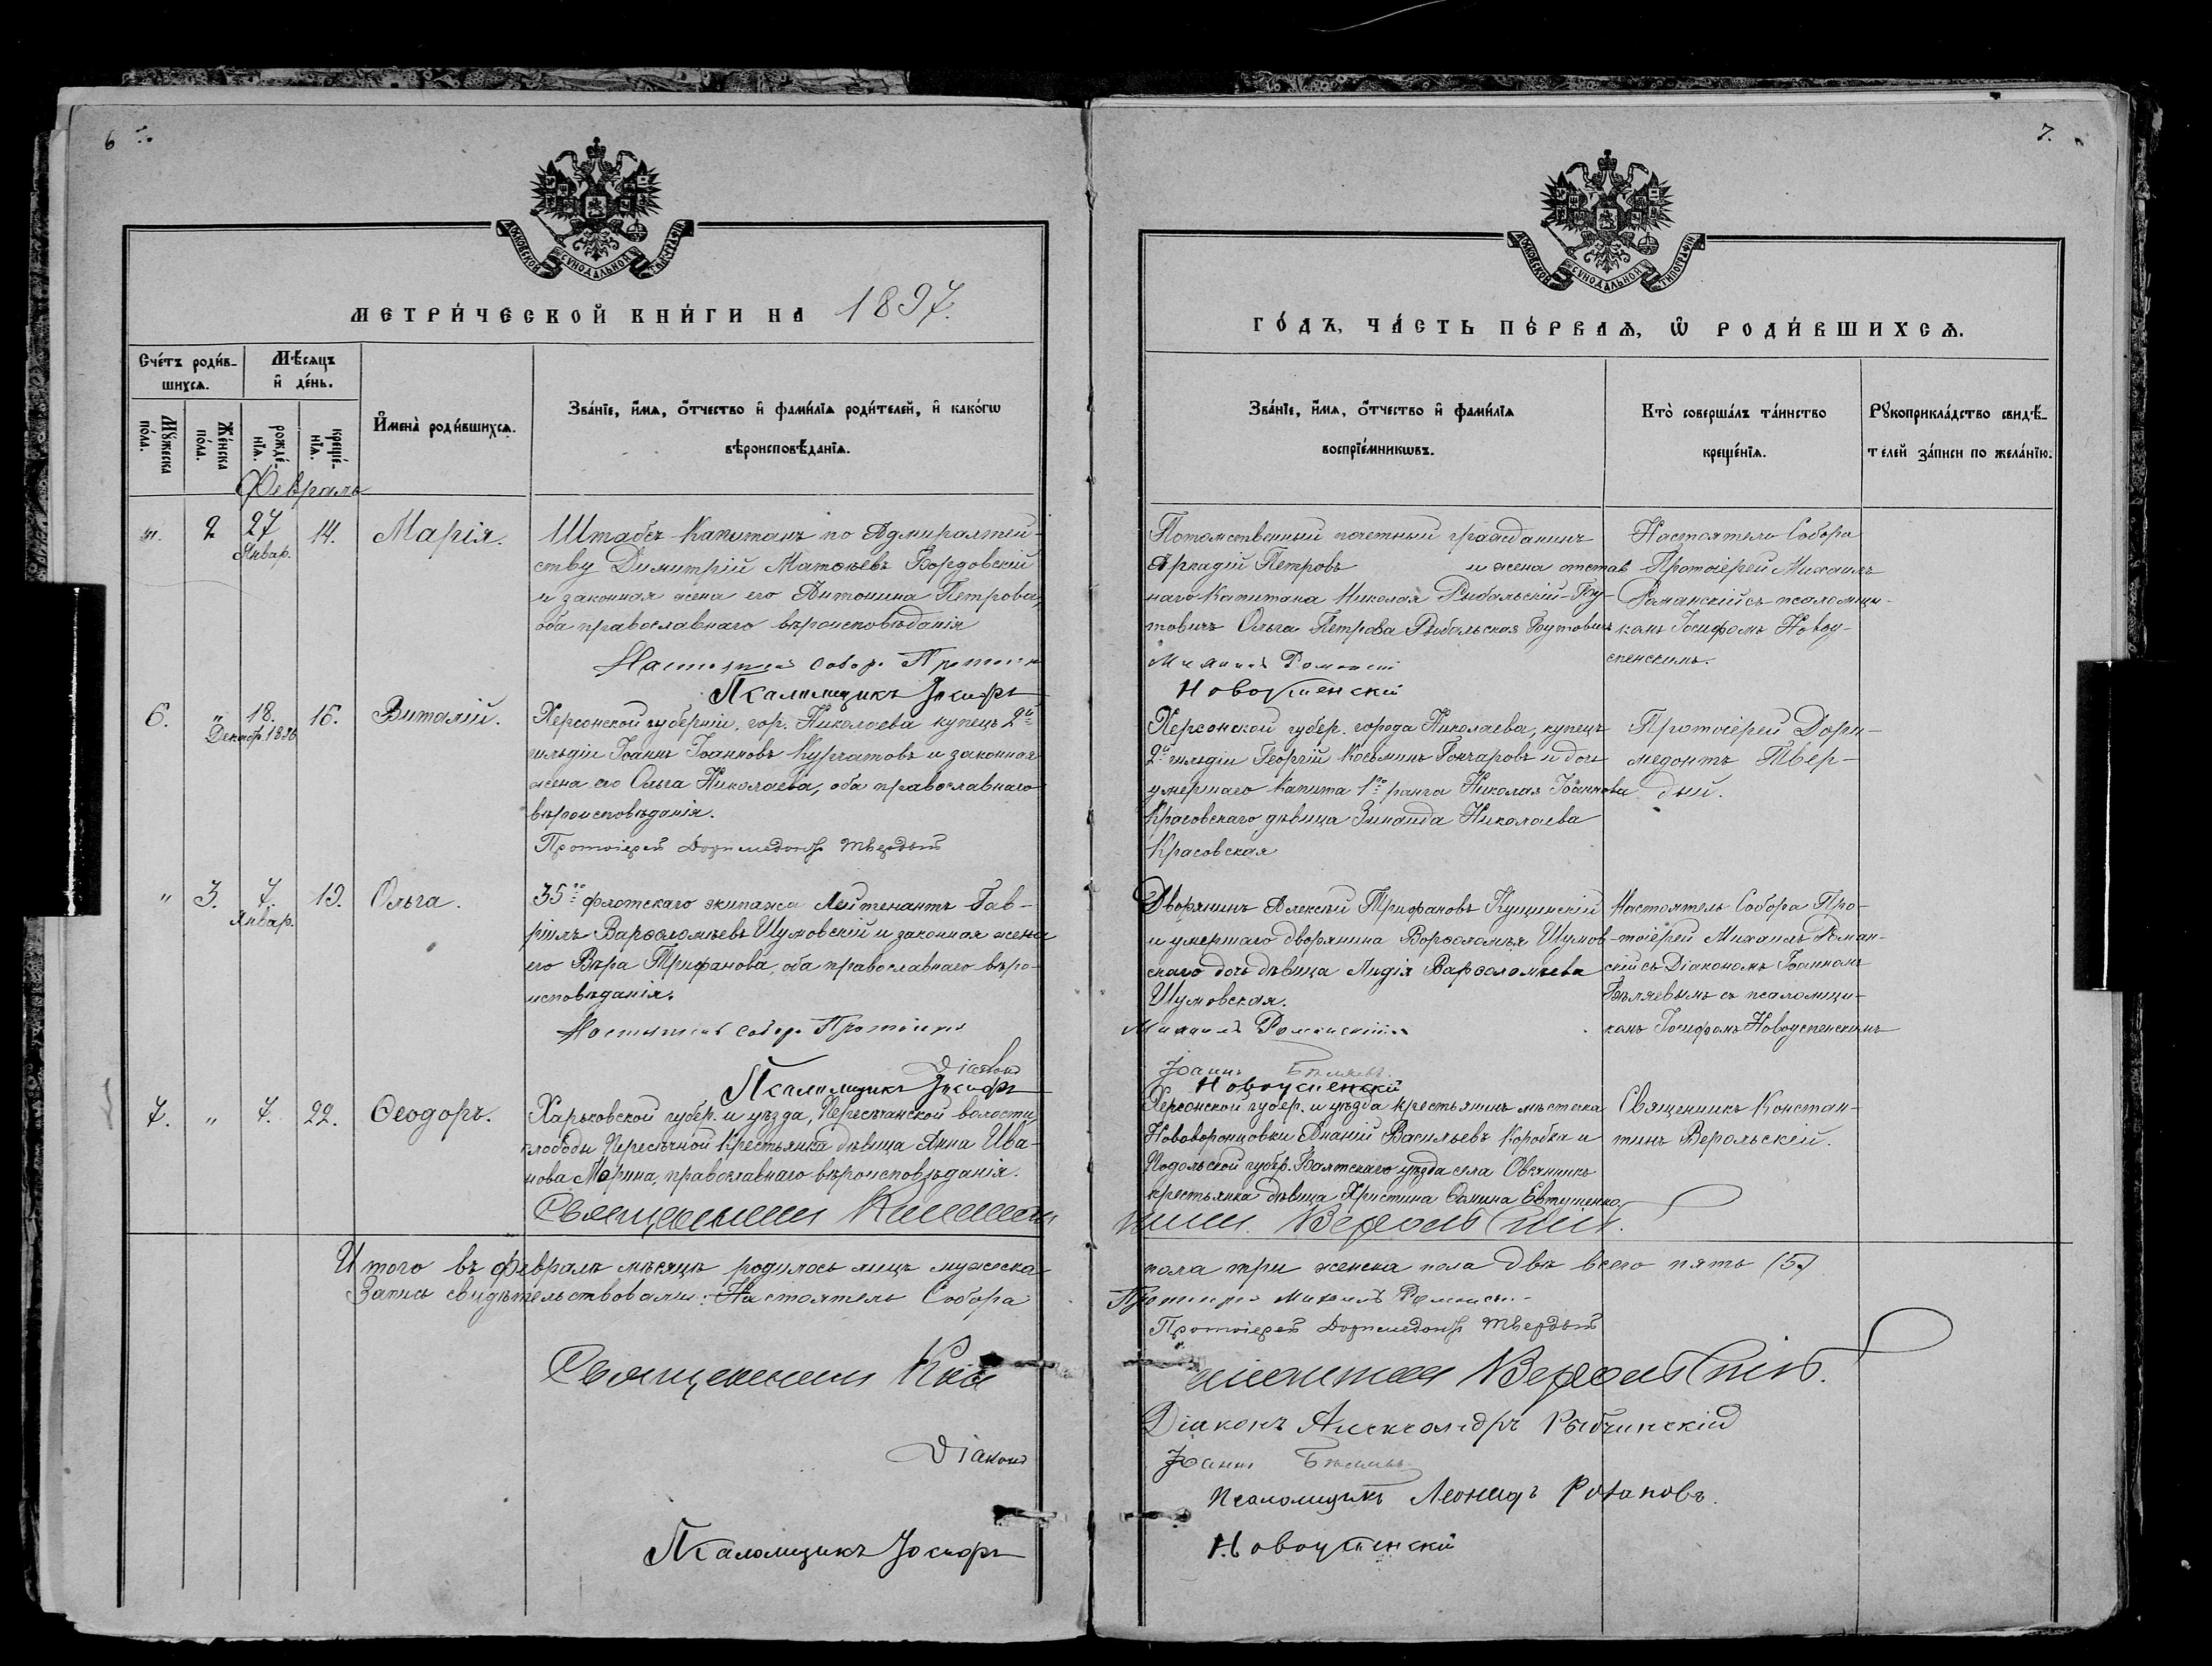 6
МОСКОВСКОЙ СѴНОДАЛЬНОЙ ТИПОГРАФІИ
МЕТРИ́ЧЕСКОЙ КНИ́ГИ НА 1897.
Сче́тъ роди́в-
шихсѧ.
Мѣ́сѧцъ
и҆ де́нь.
Мꙋ́жеска по́ла.
Же́нска по́ла.
рожде́-
нїѧ.
креще́-
нїѧ.
И҆мена̀ роди́вшихсѧ.
Зва́нїе, и҆́мѧ, ѻ҆́тчество и҆ фами́лїѧ роди́телей, и҆ како́гѡ
вѣроисповѣ́данїѧ.
Февраль
" 2 27 Январ. 14. Марія.
Штабсъ-Капитанъ по Адмиралтей-
ству Димитрій Матѳѣевъ Бордовскій
и законная жена его Антонина Петрова,
оба православнаго вѣроисповѣданія
Настоятель Собор. Протоіер
Псаломщикъ Іосифъ
6. " 18. Декабр. 1896 16. Виталій.
Херсонской губерніи, гор. Николаева купецъ 2й
гильдіи Іоаннъ Іоанновъ Курчатовъ и законная
жена его Ольга Николаева, оба православнаго
вѣроисповѣданія.
Протоіерей Доримедонтъ Твердый
" 3. 7. Январ. 19. Ольга.
35го флотскаго экипажа Лейтенантъ Гав-
ріилъ Варѳоломѣевъ Шумовскій и законная жена
его Вѣра Трифанова, оба православнаго вѣро-
исповѣданія.
Настоятель Собор. Протоіерей
Діаконъ
Псаломщикъ Іосифъ
7. " 7. 22. Ѳеодоръ.
Харьковской губер. и уѣзда, Пересѣчанской волости,
слободы Пересѣчной крестьянка дѣвица Анна Ива-
нова Марина, православнаго вѣроисповѣданія.
Священникъ Констан
Итого въ февралѣ мѣсяцѣ родилось лицъ мужеска
Запись свидѣтельствовали: Настоятель Собора
Священникъ Кон
Діаконъ
Псаломщикъ Іосифъ
7.
МОСКОВСКОЙ СѴНОДАЛЬНОЙ ТИПОГРАФІИ
ГО́ДЪ, ЧА́СТЬ ПЕ́РВАѦ, Ѽ РОДИ́ВШИХСѦ.
Зва́нїе, и҆́мѧ, ѻ҆́тчество и҆ фами́лїѧ
воспрїе́мникѡвъ.
Кто̀ соверша́лъ та́инство
креще́нїѧ.
Рꙋкоприкла́дство свидѣ́-
телей за́писи по жела́нїю.
Потомственный почетный гражданинъ
Аркадій Петровъ и жена отстав
наго Капитана Николая Рыбальскій-Бу-
товичъ Ольга Петрова Рыбальская Бутовичъ
Михаилъ Романскій
Новоуспенскій
Настоятель Собора
Протоіерей Михаилъ
Романскій съ псаломщи-
комъ Іосифомъ Новоу-
спенскимъ.
Херсонской губер. города Николаева, купецъ
2й гильдіи Георгій Косьминъ Гончаровъ и дочь
умершаго Капита 1го ранга Николая Іоаннова
Красовскаго дѣвица Зинаида Николаева
Красовская
Протоіерей Дори-
медонтъ Твер-
дый.
Дворянинъ Алексѣй Трифановъ Куцинскій
и умершаго дворянина Варѳоломѣя Шумов-
скаго дочь дѣвица Лидія Варѳоломѣева
Шумовская.
Михаилъ Романскій
Іоаннъ Бѣляевъ
Новоуспенскій
Настоятель Собора Про-
тоіерей Михаилъ Роман-
скій съ Діакономъ Іоанномъ
Бѣляевымъ съ псаломщи-
комъ Іосифомъ Новоуспенскимъ
Херсонской губер. и уѣзда крестьянинъ мѣстечка
Нововоронцовки Ананій Васильевъ Коробка и
Подольской губер. Балтскаго уѣзда села
крестьянка дѣвица Христина Ѳомина Евтушенко.
тинъ Верольскій.
Священникъ Констан-
тинъ Верольскій.
пола три женска пола двѣ всего пять (5)
Протоіерей Михаилъ Романскій
Протоіерей Доримедонтъ Твердый
стантинъ Верольскій.
Діаконъ Александръ Рыбчинскій
Іоаннъ Бѣляевъ
Псаломщикъ Леонидъ Потаповъ.
Новоуспенскій